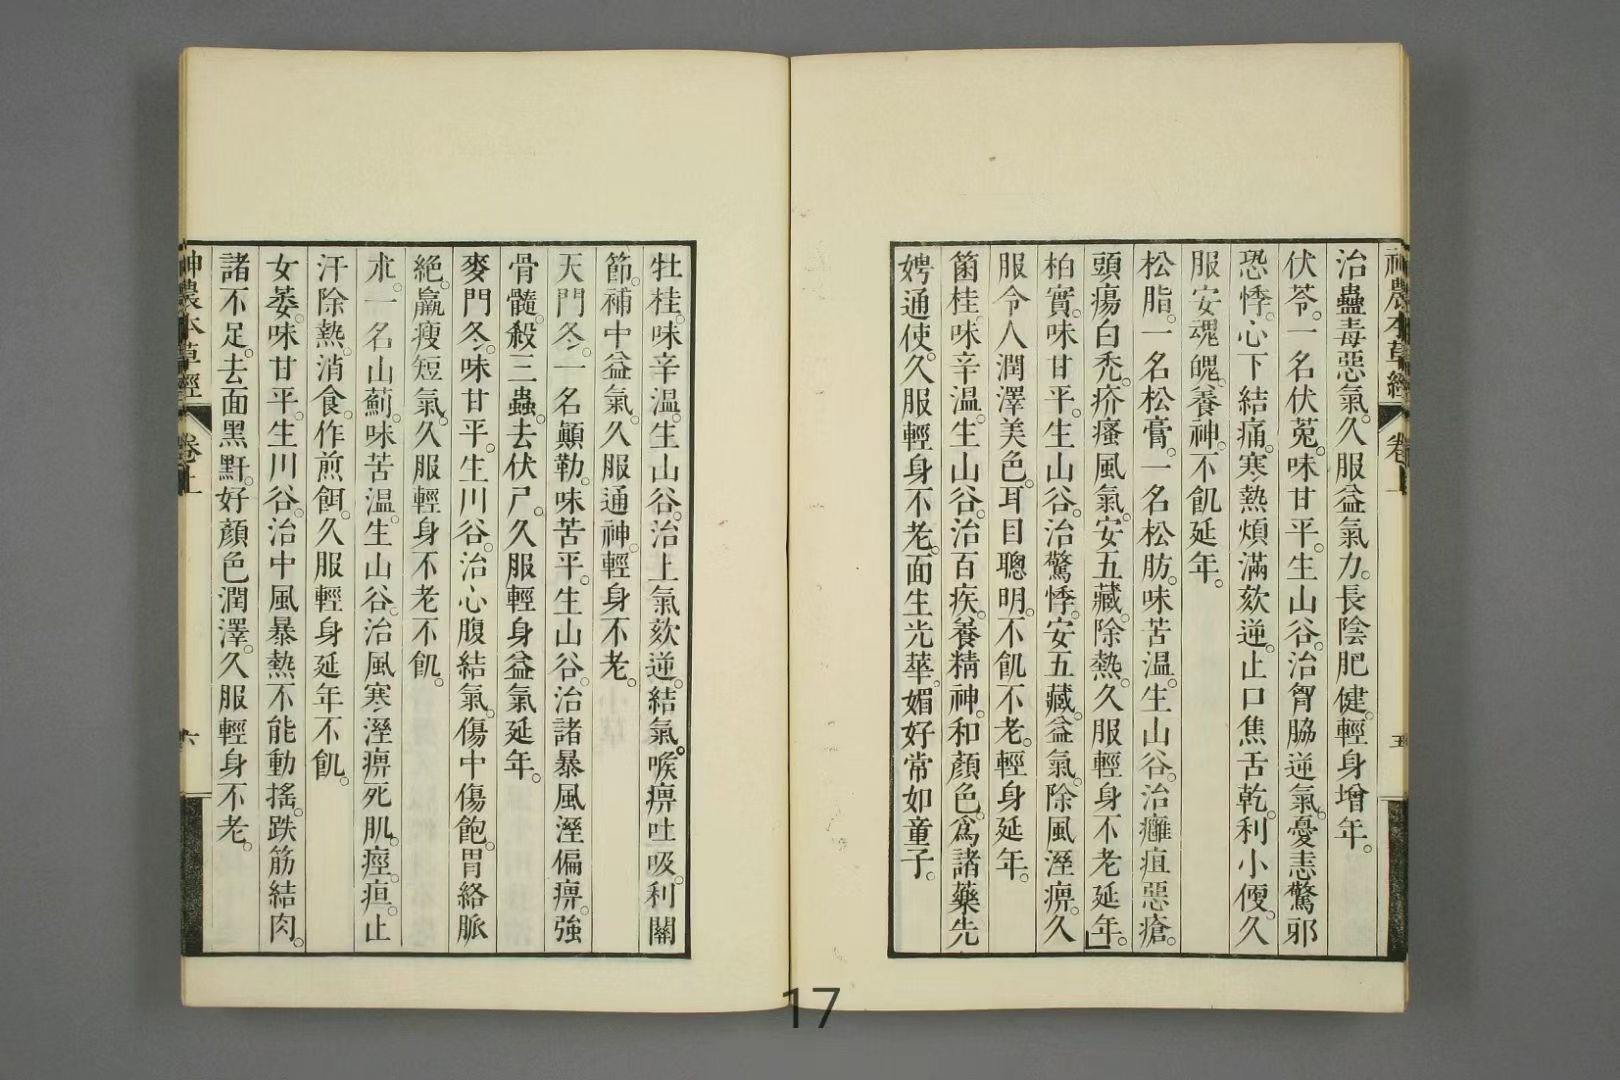 神農本草經 卷上 五
治蠱毒惡氣。久服益氣力。長陰肥健。輕身增年。
伏苓。一名伏菟。味甘平。生山谷。治胷脇逆氣。憂恚驚邪
恐悸。心下結痛。寒熱煩滿欬逆。止口焦舌乾。利小便。久
服安魂魄。養神。不飢延年。
松脂。一名松膏。一名松肪。味苦溫。生山谷。治癰疽惡瘡。
頭瘍白禿。疥瘙風氣。安五藏。除熱。久服輕身不老延年。
柏實。味甘平。生山谷。治驚悸。安五藏。益氣。除風溼痹。久
服令人潤澤美色。耳目聰明。不飢不老。輕身延年。
箘桂。味辛溫。生山谷。治百疾。養精神。和顏色。爲諸藥先
娉通使。久服輕身不老。面生光華。媚好常如童子。
牡桂。味辛溫。生山谷。治上氣欬逆。結氣。喉痹吐吸。利關
節。補中益氣。久服通神。輕身不老。
天門冬。一名顚勒。味苦平。生山谷。治諸暴風溼偏痹。強
骨髓。殺三蟲。去伏尸。久服輕身益氣延年。
麥門冬。味甘平。生川谷。治心腹結氣。傷中傷飽。胃絡脈
絕。羸瘦短氣。久服輕身不老不飢。
朮。一名山薊。味苦溫。生山谷。治風寒溼痹死肌。痙疸。止
汗除熱。消食。作煎餌。久服輕身延年不飢。
女萎。味甘平。生川谷。治中風暴熱不能動搖。跌筋結肉。
諸不足。去面黑䵟。好顏色潤澤。久服輕身不老。
神農本草經 卷上 六
17